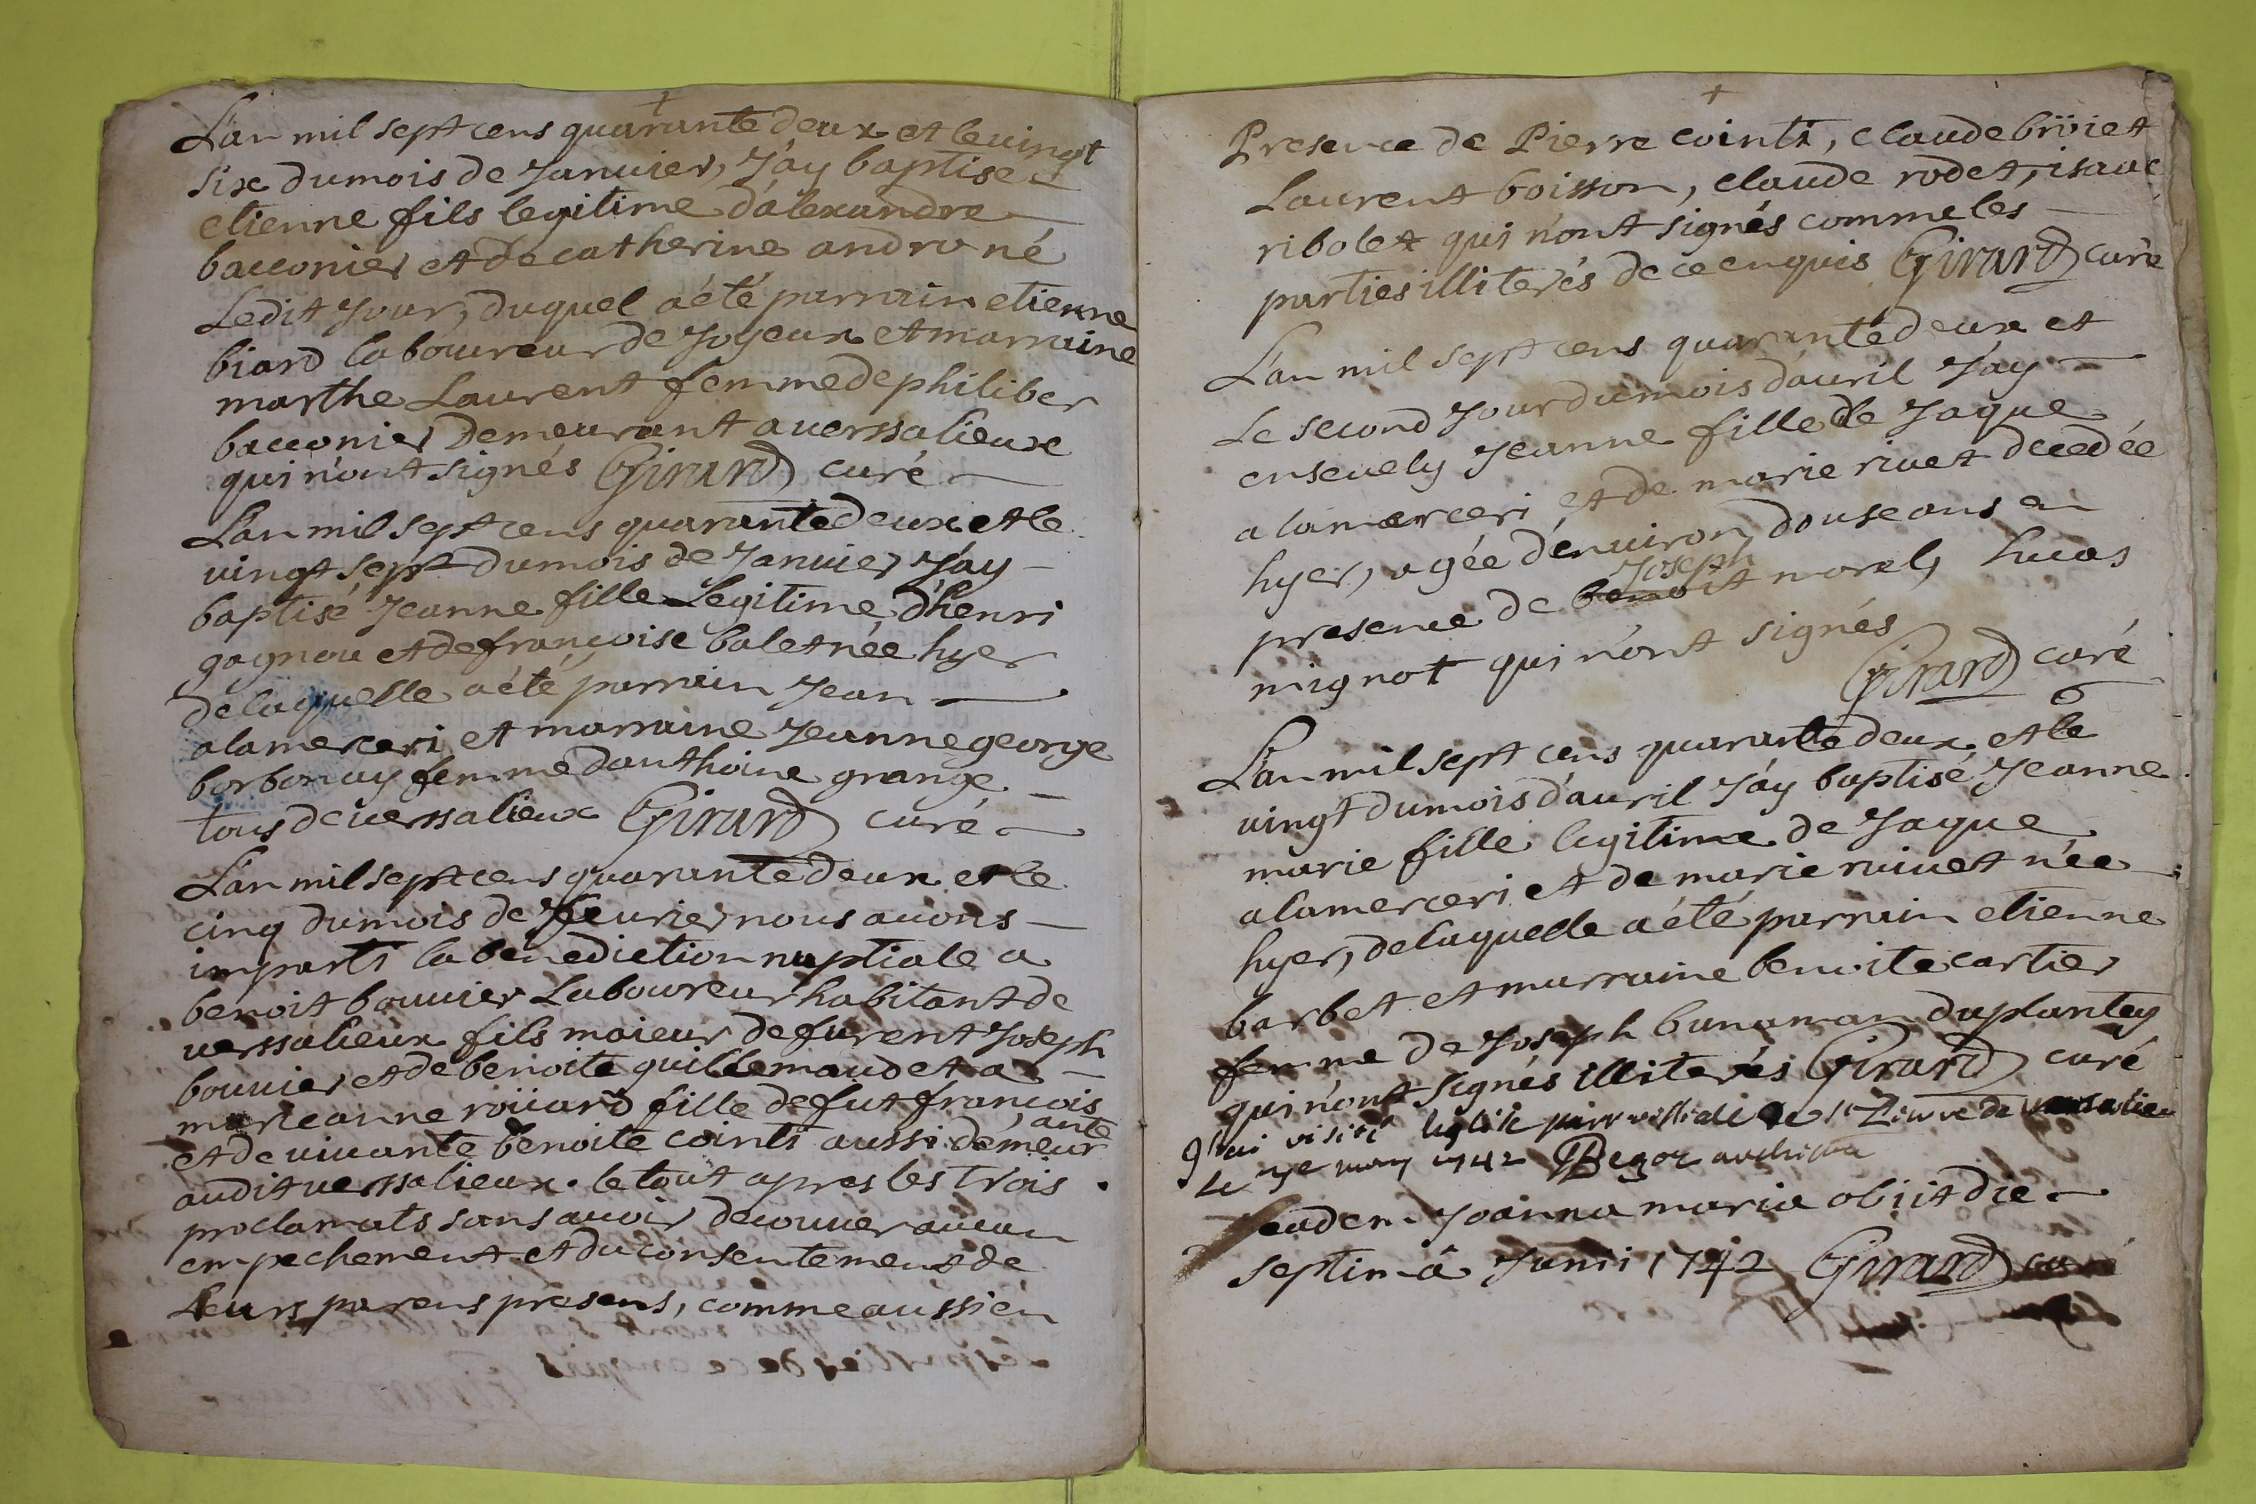 L'an mil sept cens quarante deux et le vingt
six du mois de Janvier, J'ay baptisé
etienne fils legitime d'alexandre
bacconier et de catherine andro né
Ledit Jour, duquel a été parrain etienne
biard laboureur de Joyeux et marraine
marthe Laurent femme de philiber
bacconier demeurant a verssalieux
qui n'ont signés Girard curé
L'an mil sept cens quarante deux et le
vingt sept du mois de Janvier J'ay
baptisé Jeanne fille Legitime d'henri
gagnou et de françoise balet née hyer
de laquelle a été parrain Jean
alamerceri et marraine Jeanne george
borbonay femme d'anthoine grange
tous de verssalieux Girard curé
L'an mil sept cens quarante deux et le
cinq du mois de fevrier nous avons
imparti la benediction nuptiale a
benoit bouvier Laboureur habitant de
verssalieux fils maieur de furent Joseph
bouvier et de benoite guillemaud et a
marieanne roüard fille de fut françois
et de vivante benoite cointi aussi demeurante
audit verssalieux. le tout apres les trois
proclamats sans avoir decouvier aucun
empechement et du consentement de
Leurs parens presens, comme aussi en
Presence de Pierre cointi, claude brüiet
Laurent boisson, claude rodet, isaac
ribolet qui n'ont signés comme les
parties illiterés de ce enquis Girard curé
L'an mil sept cens quarante deux et
Le second Jour du mois d'avril J'ay
ensevely Jeanne fille de Jaque
alamerceri et de marie rivet decedée
hyer, agée d'environ douse ans en
presence de benoit Joseph morel, lucas
mignot qui n'ont signés
Girard curé
L'an mil sept cens quarante deux et le
vingt du mois d'avril J'ay baptisé Jeanne
marie fille legitime de Jaque
alamerceri et de marie ruivet née
hyer, de laquelle a été parrain etienne
barbet et marraine benoite cartier
femme de Joseph bunaman du plantey
qui n'ont signés illiterés Girard curé
J'ai visité leglise parroissialle de
Le may 1742
eadem Joanna maria obiit die
septimâ Junii 1742 Girard curé